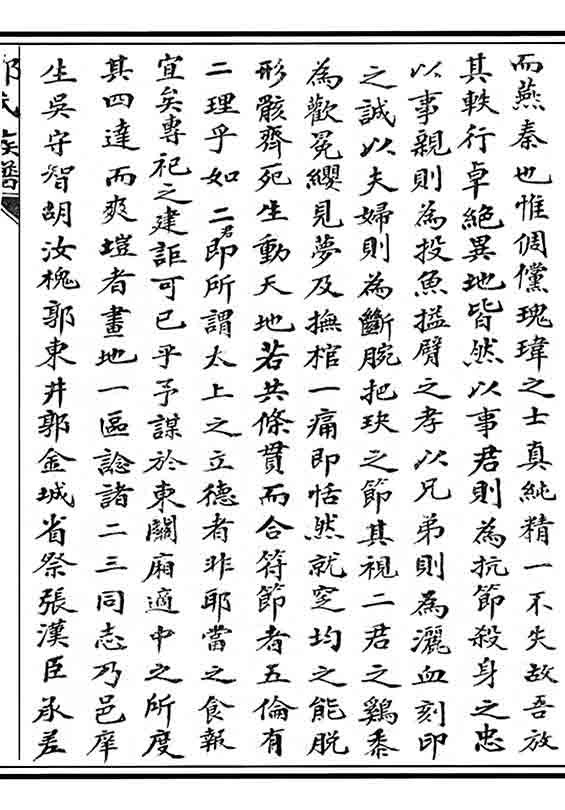 而燕秦也惟倜儻瑰瑋之士真純精一不失故吾放
其軼行卓絕異地皆然以事君則為抗節殺身之忠
以事親則為投魚搤臂之孝以兄弟則為灑血刻印
之誠以夫婦則為斷腕把玦之節其視二君之鷄黍
為歡冕纓見夢及撫棺一痛即恬然就窆均之能脫
形骸齊死生動天地若共條貫而合符節者五倫有
二理乎如二君即所謂太上之立德者非耶當之食報
宜矣專祀之建詎可已乎予謀於東關廂適中之所度
其四達而爽塏者畫地一區諗諸二三同志乃邑庠
生吳守智胡汝槐郭東井郭金城省祭張漢臣承差
族譜